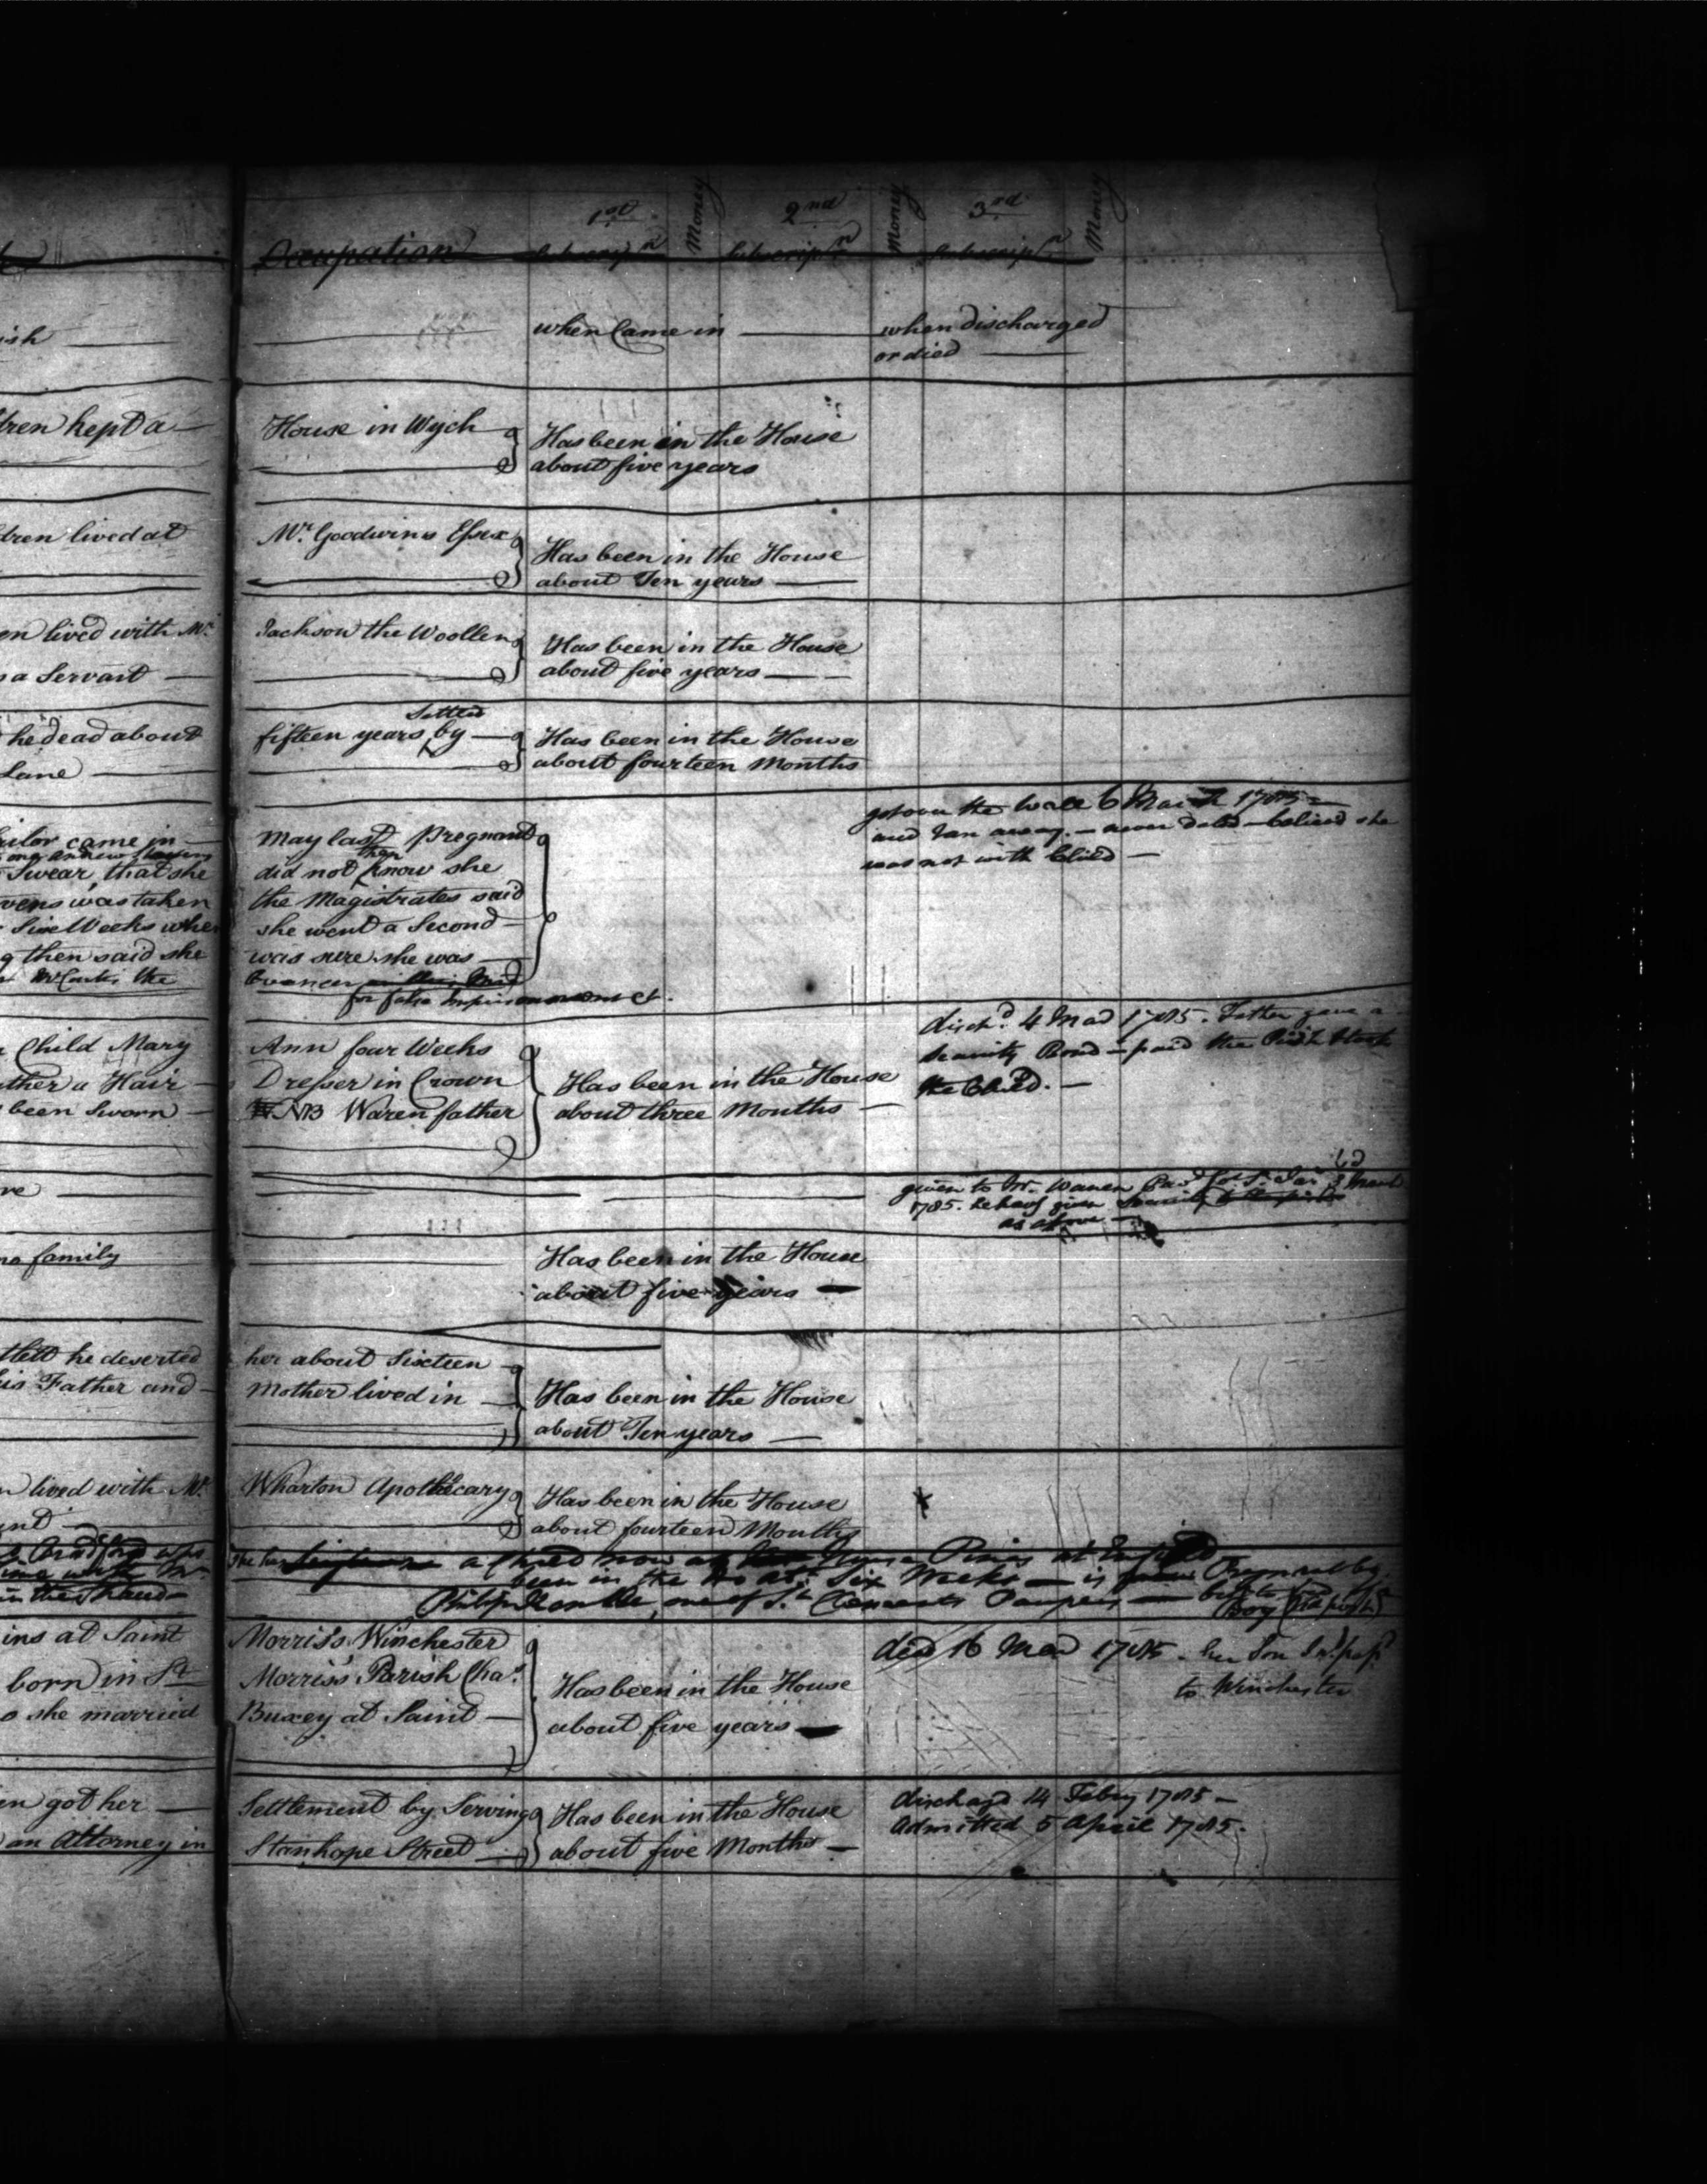 Occupation 1st Subscripn Money 2nd Subscripn Money 3rd Subscripn Money
ish when Came in when discharged
or died
dren kept a House in Wych Has been in the House
about five years
dren lived at Mr. Goodwins Essex Has been in the House
about Ten years
en lived with Mr. Jackson the Woollen Has been in the House
a Servant about five years
Settled
he dead about fifteen years by Has been in the House
Lane about fourteen Months
got over the Wall 6 March 1785
and ran away. — never — believed she
was not with Child —
ailor came in May last Pregnant
then
Swear, that she did not know she
vens was taken the Magistrates said
Six Weeks when she went a Second
g then said she was sure she was
the
for false Imprisonment
dischd. 4 Mar 1785. Father gave a
Security Bond — paid the
the Child. —
Child Mary Ann four Weeks
ather a Hair Dresser in Crown Has been in the House
been Sworn NB Waren father about three Months
re given to Mr. Waren
1785. he having given Security
as above
no family Has been in the House
about five years
tlett he deserted her about Sixteen
his Father and Mother lived in Has been in the House
about Ten years
n lived with Mr. Wharton Apothecary Has been in the House
about fourteen Months
She has a Child now at Nurse at Enfield
been in the Ho abt. Six Weeks — is Pregnant by
Philip one of St. Clements Paupers
Boy
ins at Saint Morris's Winchester died 16 Mar 1785. her Son
to Winchester
born in St Morris's Parish Chas. Has been in the House
o she married Buxey at Saint about five years
en got her Settlement by Serving Has been in the House dischagd 14 Febry 1785 —
Admitted 5 April 1785.
an Attorney in Stanhope Street about five Months